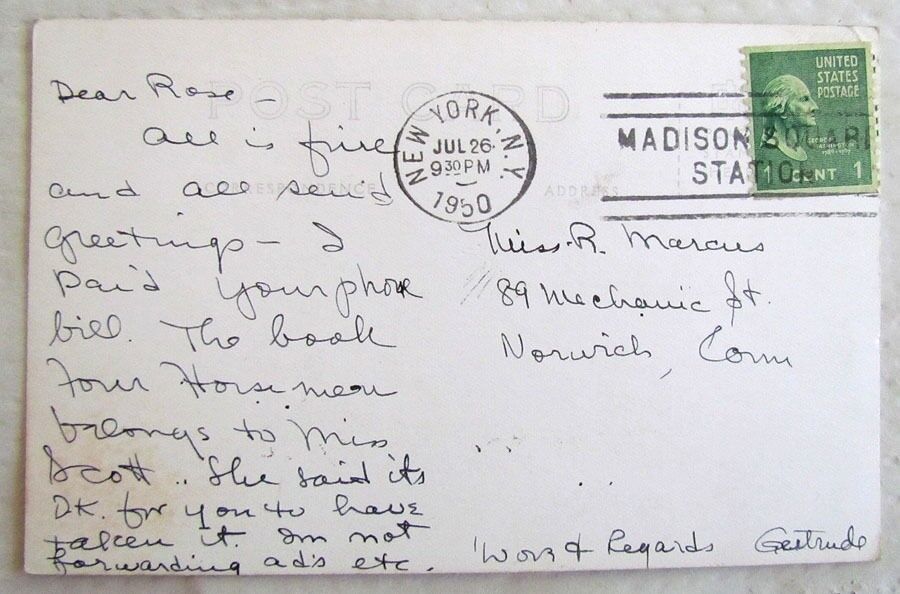 POST CARD
CORRESPONDENCE
ADDRESS
Dear Rose –
All is fine
and all send
greetings – I
paid your phone
bill. The book
Four Horsemen
belongs to Miss
Scott .. She said its
OK. for you to have
taken it. Im not
forwarding ads etc.
NEW YORK, N.Y.
JUL 26
9 30 PM
1950
MADISON SQUARE
STATION
UNITED
STATES
POSTAGE
GEORGE
WASHINGTON
1789-1797
1 CENT 1
Miss. R. Marcus
89 Mechanic St.
Norwich, Conn
& Regards Gertrude